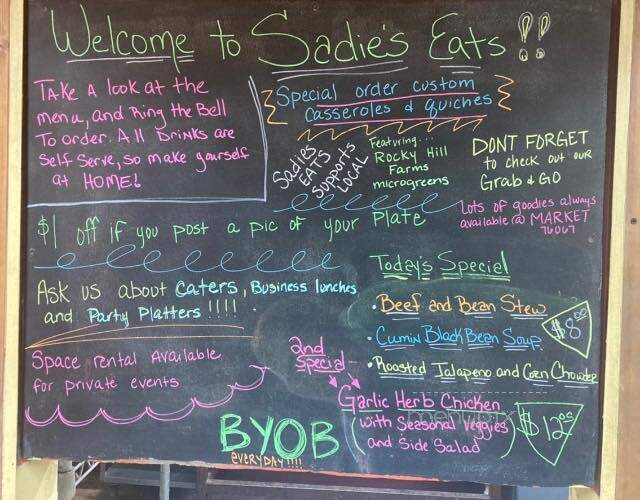 Welcome to Sadie's Eats !!
Take A look at the
menu, and Ring the Bell
To order. All Drinks are
Self Serve, so make yourself
at HOME!
Special order custom
casseroles & quiches
Sadies
EATS
Supports
LOCAL
Featuring...
Rocky Hill
Farms
microgreens
DONT FORGET
to check out our
Grab & GO
Lots of goodies always
available @ MARKET
76067
$1 off if you post a pic of your Plate
Ask us about Caters, Business lunches
and Party Platters !!!!
Space rental Available
for private events
BYOB
everyday!!!!
Today's Special
• Beef and Bean Stew
• Cumin Black Bean Soup
• Roasted Jalapeno and Corn Chowder
$8.00
2nd
Special
Garlic Herb Chicken
(with Seasonal Veggies
and Side Salad)
$12.95